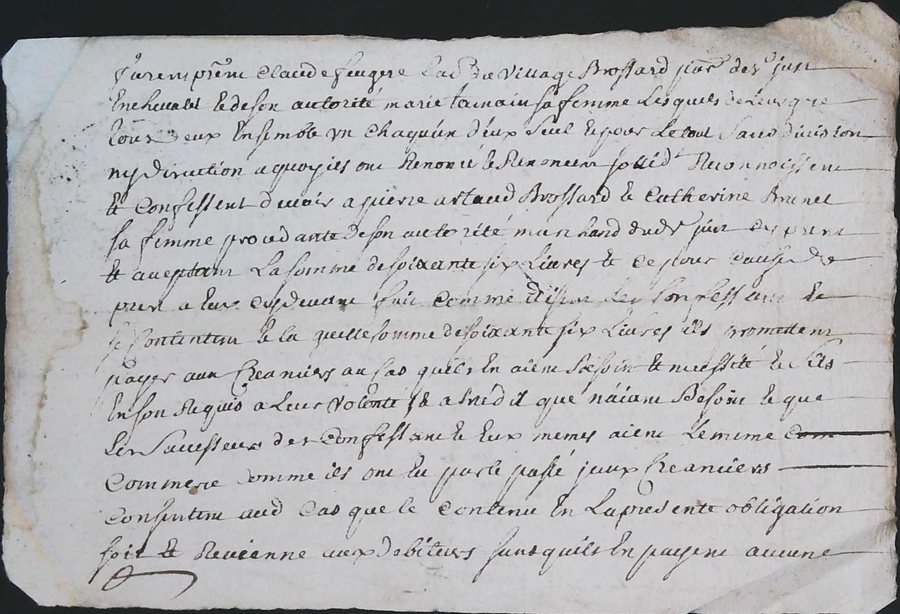 furent pñts Claude feugere Lad. du village Brossard par. de St just
en chevalet & de son autorité marie tamain sa femme Lesquels de leur gre
tous deux Ensemble un chaqu'un d'eux seul & pour Le tout sans division
ny discution a quoy ils ont Renoncé & Renoncent Reconnoissent
& Confessent devoir a pierre artaud Brossard & Catherine Brunet
sa femme procedante de son autorité marchand dud. St just cy pnt
& aceptant La somme de soixante six Livres & ce pour cause de
pret a Eux cy devant fait comme disent Les Confessant &
se Contentent & la quelle somme de soixante six Livres ils promettent
payer aux Creanciers au cas qu'ils En aient Besoin & necessité & s'ils
En son Requis a Leur volonté & a été dit que n'aiant Besoin & que
Les Successeurs des Confessant & Eux memes aient Le meme com
Commerce comme ils ont Eu par le passé aux Creanciers
Consentent aud cas que le contenu En La presente obligation
soit & Revienne aux debiteurs sans qu'ils En payent aucune